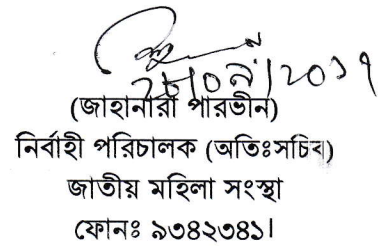 (জাহানারা পারভীন)
নির্বাহী পরিচালক (অতিঃসচিব)
জাতীয় মহিলা সংস্থা
ফোনঃ ৯৩৪২৩৪১।